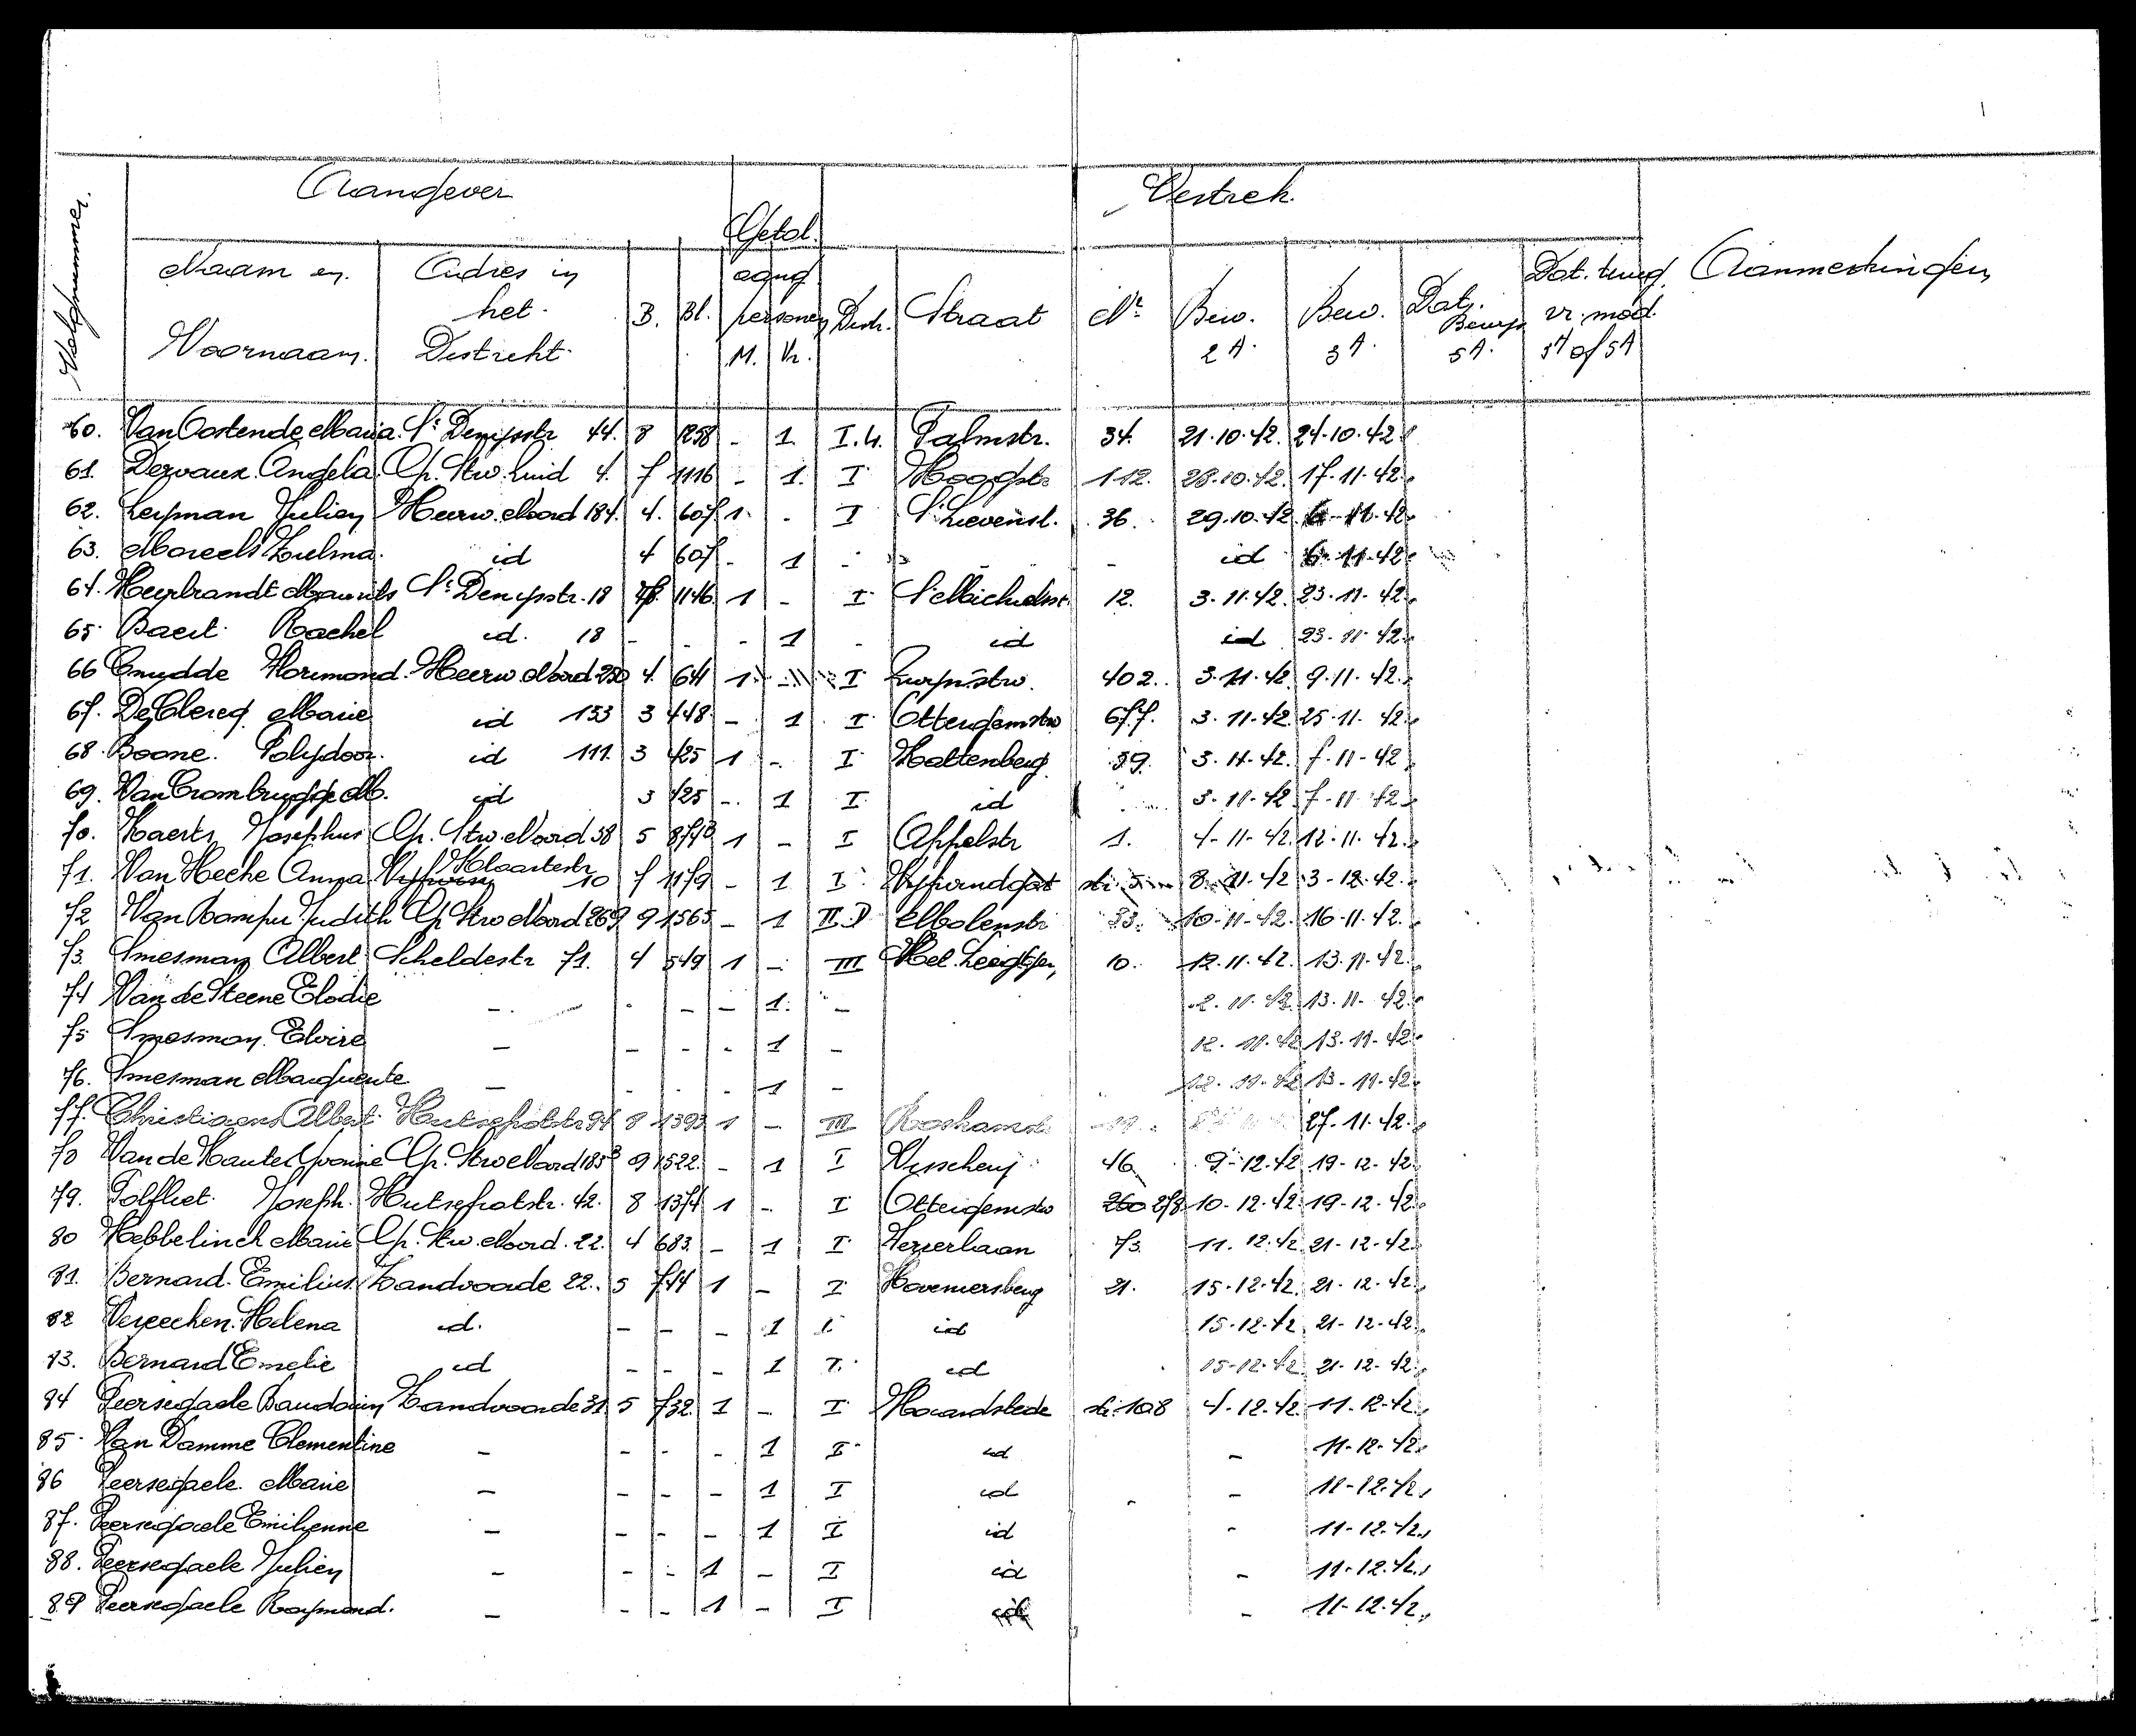 Volgnummer.
Aangever
Vertrek.
Getal
Naam en Voornaam.
Adres in het Distrikt.
B.
Bl.
aang personen
M. Vr.
Distr.
Straat
Nr
Bew. 2A.
Bew. 3A.
Dat. Bewijs 5A.
Dat. terug vr. mod. 3A of 5A
Aanmerkingen
60. Van Oostende Maria St Denijsstr 44. 8 1258 - 1. I.4. Palmstr. 34. 21.10.42. 24.10.42
61. Dervaux Angela Op. Stw. Zuid 4. 7 1116 - 1. I Hoogstr. 112. 28.10.42. 17.11.42
62. Leyman Julien Heerw. Noord 184. 4. 607 1. - I St Lievenst. 36. 29.10.42 6-11-42
63. Mareels Zulma. id 4 607 - 1 - - id 6-11-42
64. Heyrbrandt Maurits St Denijsstr. 18 1146 1 - I St Michielsstr. 12. 3.11.42. 23.11.42
65. Baert Rachel id. 18 - - - 1 - id id 23-11-42
66 Cnudde Hormond. Heerw. Noord 4. 641 1 - I 402. 3.11.42. 9.11.42.
67. De Clercq Marie id 153 3 448 - 1 I Ottergemstw 677. 3.11.42 25-11-42
68. Boone Polydoor. id 111. 3 425 1 - I Kattenberg 59. 3.11.42. 7-11-42
69. Van Crombrugghe M. id 3 425 - 1 I id 3-11-42 7-11-42
70. Haerts Josephus Op. Stw. Noord 58 5 874B 1 - I Appelstr 1. 4-11-42. 12-11-42.
71. Van Hecke Anna Klaartestr 10 7 1179 - 1 I Vijfwindgat str. 5 8.11.42 3-12-42.
72 Van Kampu Judith Op Stw Noord 269 9 1565 - 1 II.D Molenstr 33. 10-11-42. 16-11-42.
73. Smesman Albert Scheldestr 71. 4 549 1 - III 10. 12.11.42. 13.11.42.
74 Van de Steene Elodie - - - - 1. - 12.11.42. 13.11-42.
75 Smesman Elvire - - - - 1 - 12.11.42 13.11-42.
76. Smesman Marguerite - - - - 1 - 12.11-42 13-11-42.
77. Christiaens Albert Hutsepotstr 94 8 1393 1 - III 27.11.42.
78 Van de Haute Yvonne Op. Stw Noord 185B 9 1522. - 1 I Visscherij 46 9-12.42 19-12-42
79. Polfliet Joseph. Hutsepotstr. 42. 8 1374 1 - I Ottergemstw 260 278 10-12.42. 19-12-42
80 Hebbelinck Marie Op. Stw. Noord. 22. 4 683. - 1 I 73. 11.12.42 21-12-42.
81. Bernard Emilius Zandvoorde 22. 5 744 1 - I Hoveniersberg 21. 15-12.42. 21-12-42.
82 Vereecken Helena id. - - - 1 I id 15-12-42. 21-12-42
83. Bernard Emelie id - - - 1 I. id 15-12-42. 21-12-42.
84 Peersegaele Baudouin Zandvoorde 31 5 732 1 - I str. 108 4-12.42. 11-12-42.
85 Van Damme Clementine - - - - 1 I id - 11-12-42.
86 Peersegaele Marie - - - - 1 I id - 11-12.42.
87. Peersegaele Emilienne - - - - 1 I id - 11-12.42.
88. Peersegaele Julien - - - 1 - I id - 11-12.42.
89 Peersegaele Raymond. - - - 1 - I id - 11-12.42.